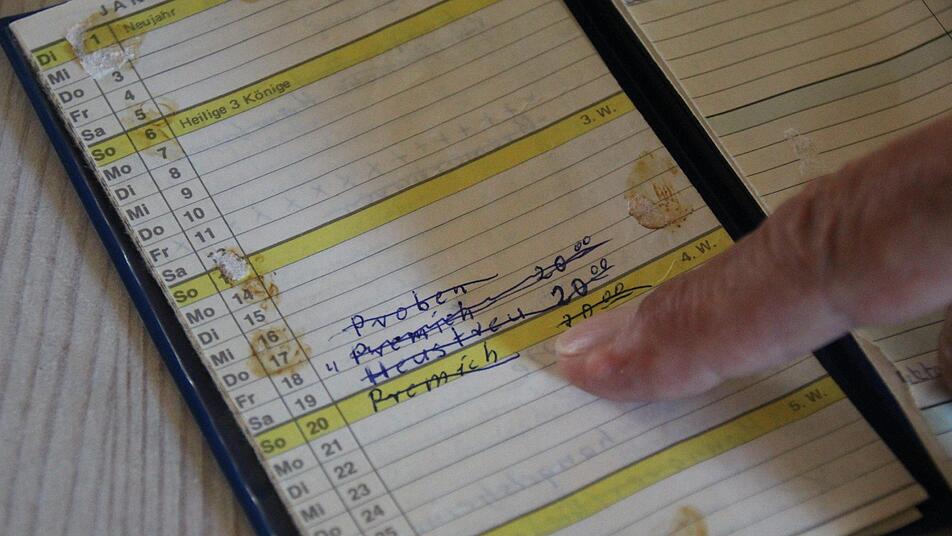 JAN
Di 1 Neujahr
Mi
Do 3
Fr 4
Sa 5
So 6 Heilige 3 Könige
Mo 7
Di 8
Mi 9
Do 10
Fr 11
Sa
So 3. W.
14
Di 15
Mi 16
Do 17 Proben
Fr 18 " Premich 20 00
Sa 19 Heustreu 20 00
So 20 Premich 00 4. W.
Mo 21
Di 22
Mi 23
Do 24
25
5. W.